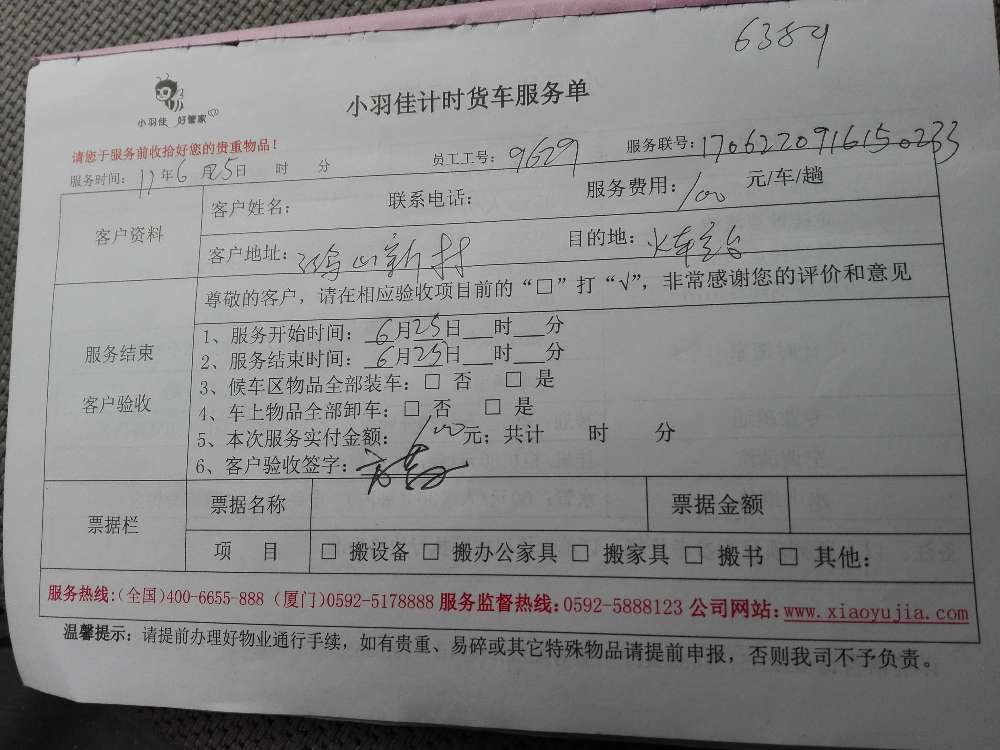 6389
小羽佳 好管家
小羽佳计时货车服务单
请您于服务前收拾好您的贵重物品！
服务时间：17年6月25日 时 分 员工工号：9629 服务联号：1706220916150233
客户资料
客户姓名： 联系电话： 服务费用：100 元/车/趟
客户地址：鸿山新村 目的地：火车站
尊敬的客户，请在相应验收项目前的“□”打“√”，非常感谢您的评价和意见
服务结束
客户验收
1、服务开始时间：6月25日 时 分
2、服务结束时间：6月25日 时 分
3、候车区物品全部装车：□ 否 □ 是
4、车上物品全部卸车：□ 否 □ 是
5、本次服务实付金额：100元；共计 时 分
6、客户验收签字：
票据栏
票据名称 票据金额
项 目 □ 搬设备 □ 搬办公家具 □ 搬家具 □ 搬书 □ 其他：
服务热线：(全国)400-6655-888 (厦门)0592-5178888 服务监督热线：0592-5888123 公司网站：www.xiaoyujia.com
温馨提示：请提前办理好物业通行手续，如有贵重、易碎或其它特殊物品请提前申报，否则我司不予负责。